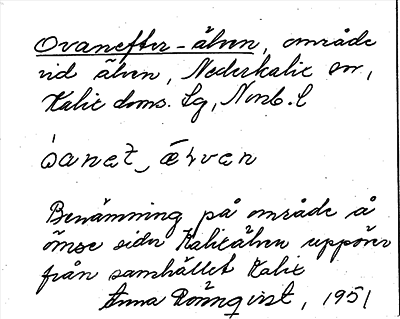 Ovanefter-älven, område
vid älven, Nederkalix sn,
Kalix doms. Lg, Norrb. l
Benämning på område å
ömse sidor Kalixälven uppöver
från samhället Kalix
Anna Rönnqvist, 1951